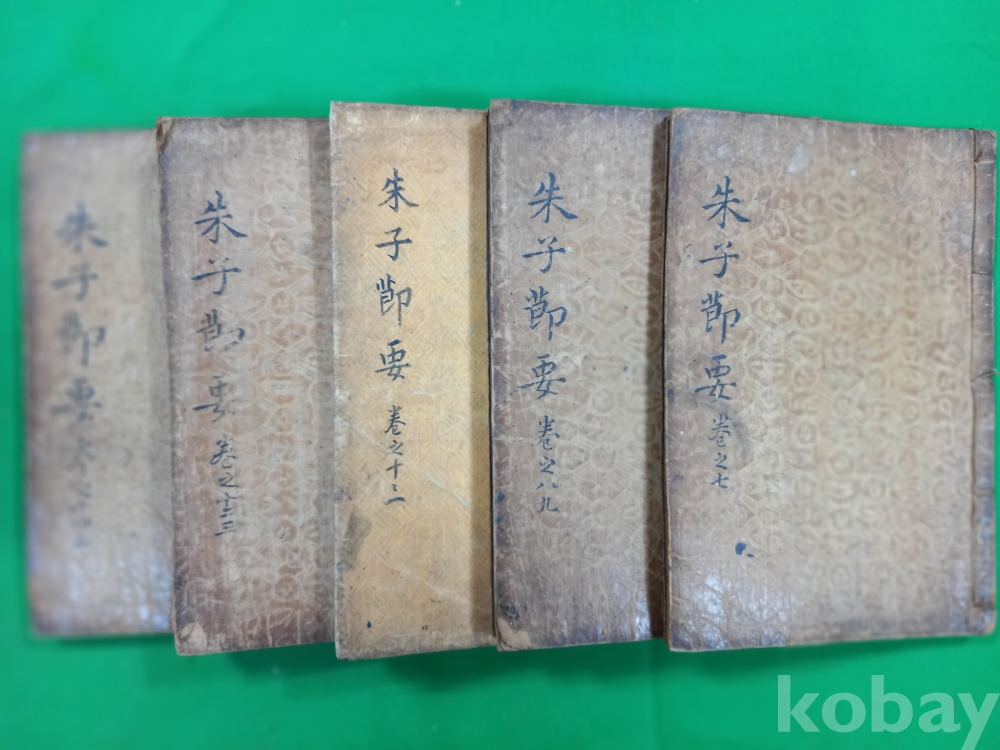 朱子莭要 卷之七
朱子莭要 卷之八九
朱子莭要 卷之十
朱子莭要 卷之十二三
朱子莭要
kobay